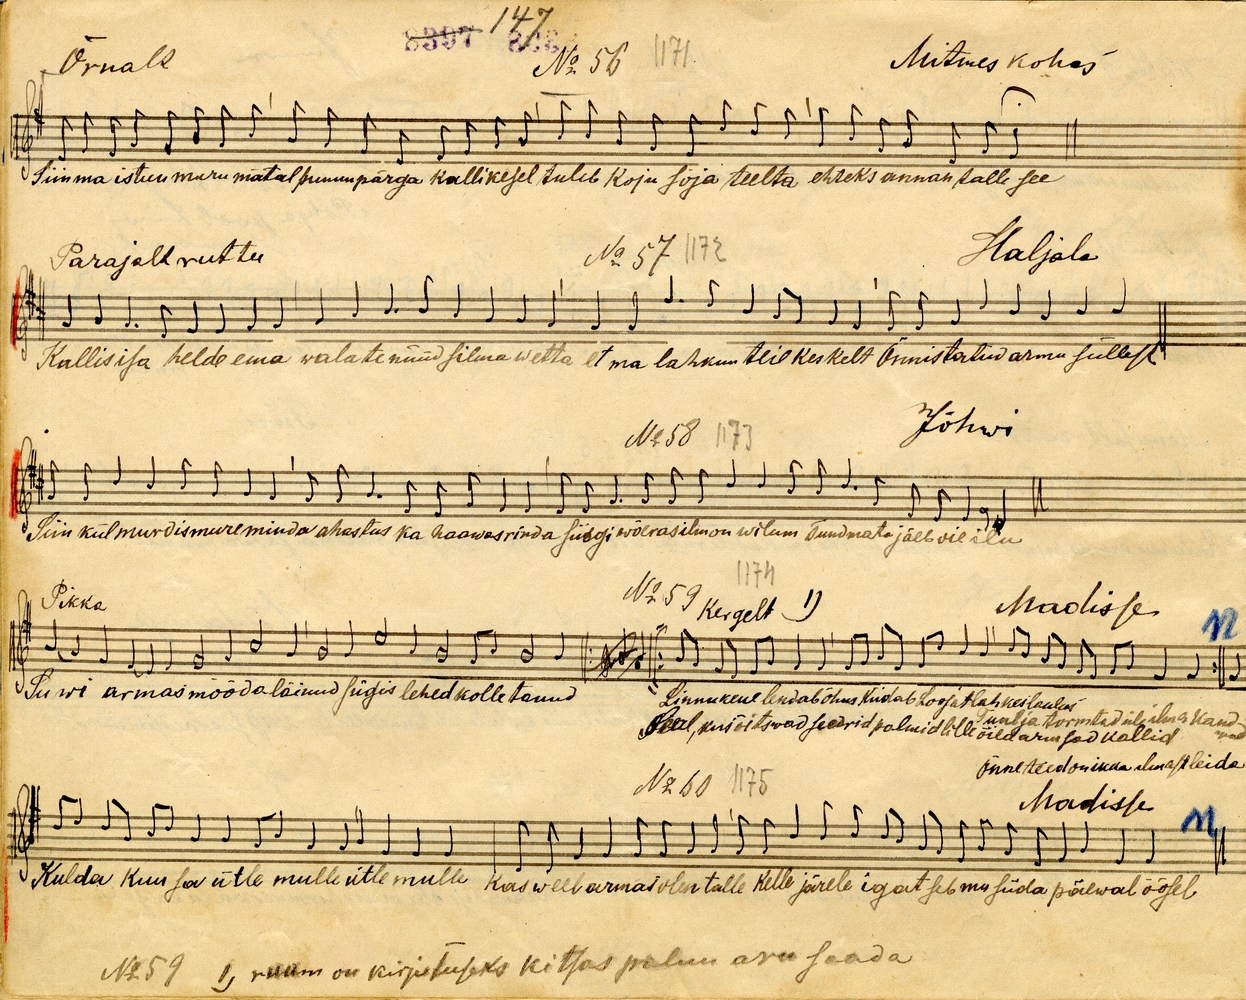 147
8397
Õrnalt № 56 1171 Mitmes kohas
Siin ma istun muru mätal punun pärga kallikesel tuleb koju sõja teelta ehteks annan talle see
Parajalt ruttu № 57 1172 Haljala
Kallis isa helde ema valate nüüd silma wetta et ma lahkun teie keskelt Õnnistatud armu süllest
№ 58 1173 Jõhwi
Siin kül murdis mure minda ahastus ka haawas rinda süsgi wõeras ilm on wilum Tundmata jääb vie ilu
Pikka № 59 1174 Kergelt 1) Madisse
Su wi armas mööda läinud sügis lehed kolletanud
Linnukene lendab õhus hüdab laulus
Seal, kus õitswad seedrid palmid lilli õied armsad kallid
Tuul ja tormtad üle ilma kand
Õnne teed on ikka ilmast leida
№ 60 1175 Madisse
Kulda kuu sa ütle mulle ütle mulle kas weel armas olen talle kelle järele igatseb mu süda päewal öösel
№ 59 1, ruum on kirjutuseks kitsas palun aru saada